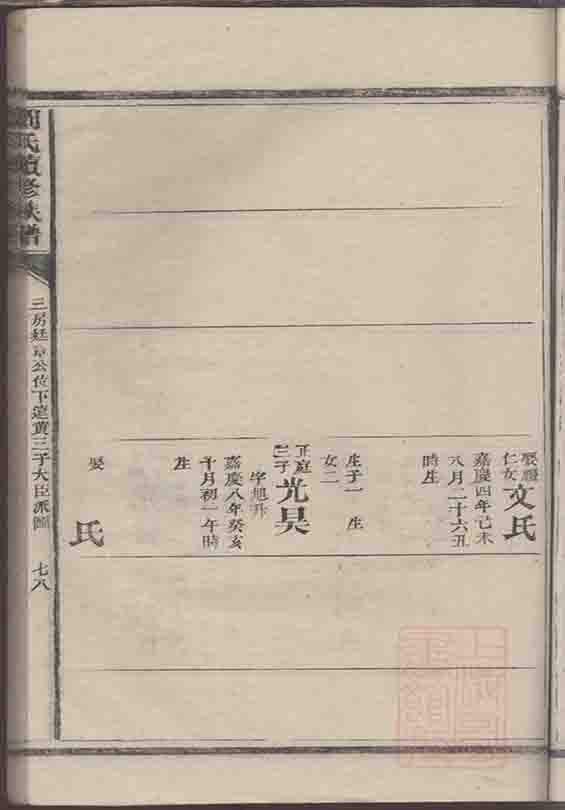 娶禮
仁女文氏
嘉慶四年己未
八月二十六丑
時生
生子一 生
女二
正庭
三子光昊
字旭升
嘉慶八年癸亥
十月初一午時
生
娶 氏
氏續修族譜
三房廷章公位下進黃三子大臣派圖 七八